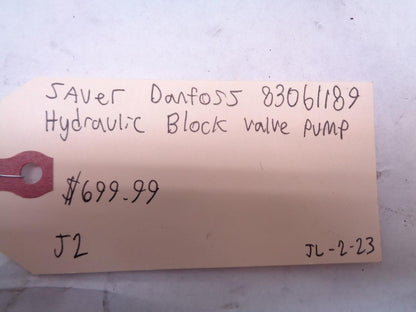 SAVer Danfoss 83061189
Hydraulic Block valve pump
$699.99
J2
JL-2-23